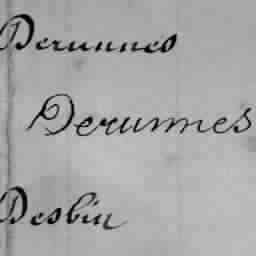 Derunnes
Derunnes
Desbin